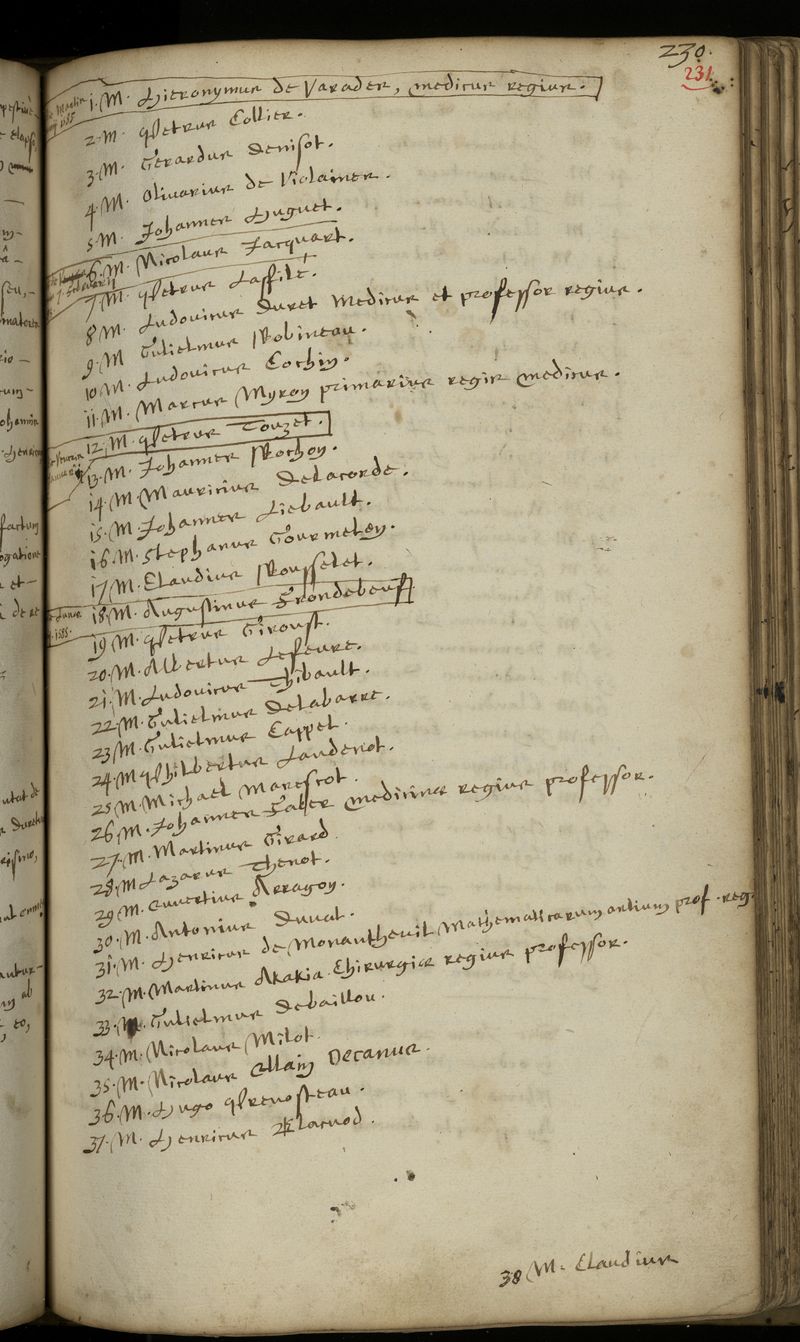 230.
231
1. M. Hieronymus de Varades, medicus regius.
2. M. Petrus Collier.
3. M. Gerardus Denisot.
4. M. Olivarius de Violaines.
5. M. Johannes Huguet.
6. M. Nicolaus Jacquart.
7. M. Petrus Laffilé.
8. M. Ludovicus Duret Medicus et professor regius.
9. M Gulielmus Robineau.
10. M. Ludovicus Cochin.
11. M. Marcus Myron primarius regis medicus.
12. M. Petrus Touzet.
13. M. Johannes Rochon.
14. M. Mauricius Delacorde.
15. M. Johannes Liebault.
16. M. Stephanus Gourmelen.
17. M. Claudius Rousselet.
18. M. Augustinus Frondebeuf
1585.
19 M. Petrus Giroust.
20. M. Albertus Lefeure.
21. M. Ludovicus Thibault.
22. M. Gulielmus Delabarre.
23 M. Gulielmus Cappel.
24. M Philbertus Laudenot.
25 M. Michael Marescot.
26 M. Johannes Faber medicinæ regius professor.
27. M. Martinus Girard
28. M Lazarus Thenot.
29 M. Evvertius Arragon.
30. M. Antonius Duual.
31. M. Henricus de Monantheuil Mathematicarum artium prof. reg.
32. M. Martinus Akakia Chirurgiæ regius professor.
33. M. Gulielmus Debaillou.
34. M. Nicolaus Milot
35. M. Nicolaus Ellain Decanus.
36. M. Hugo Prevosteau.
37. M. Henricus Blacuod.
38 M. Claudius